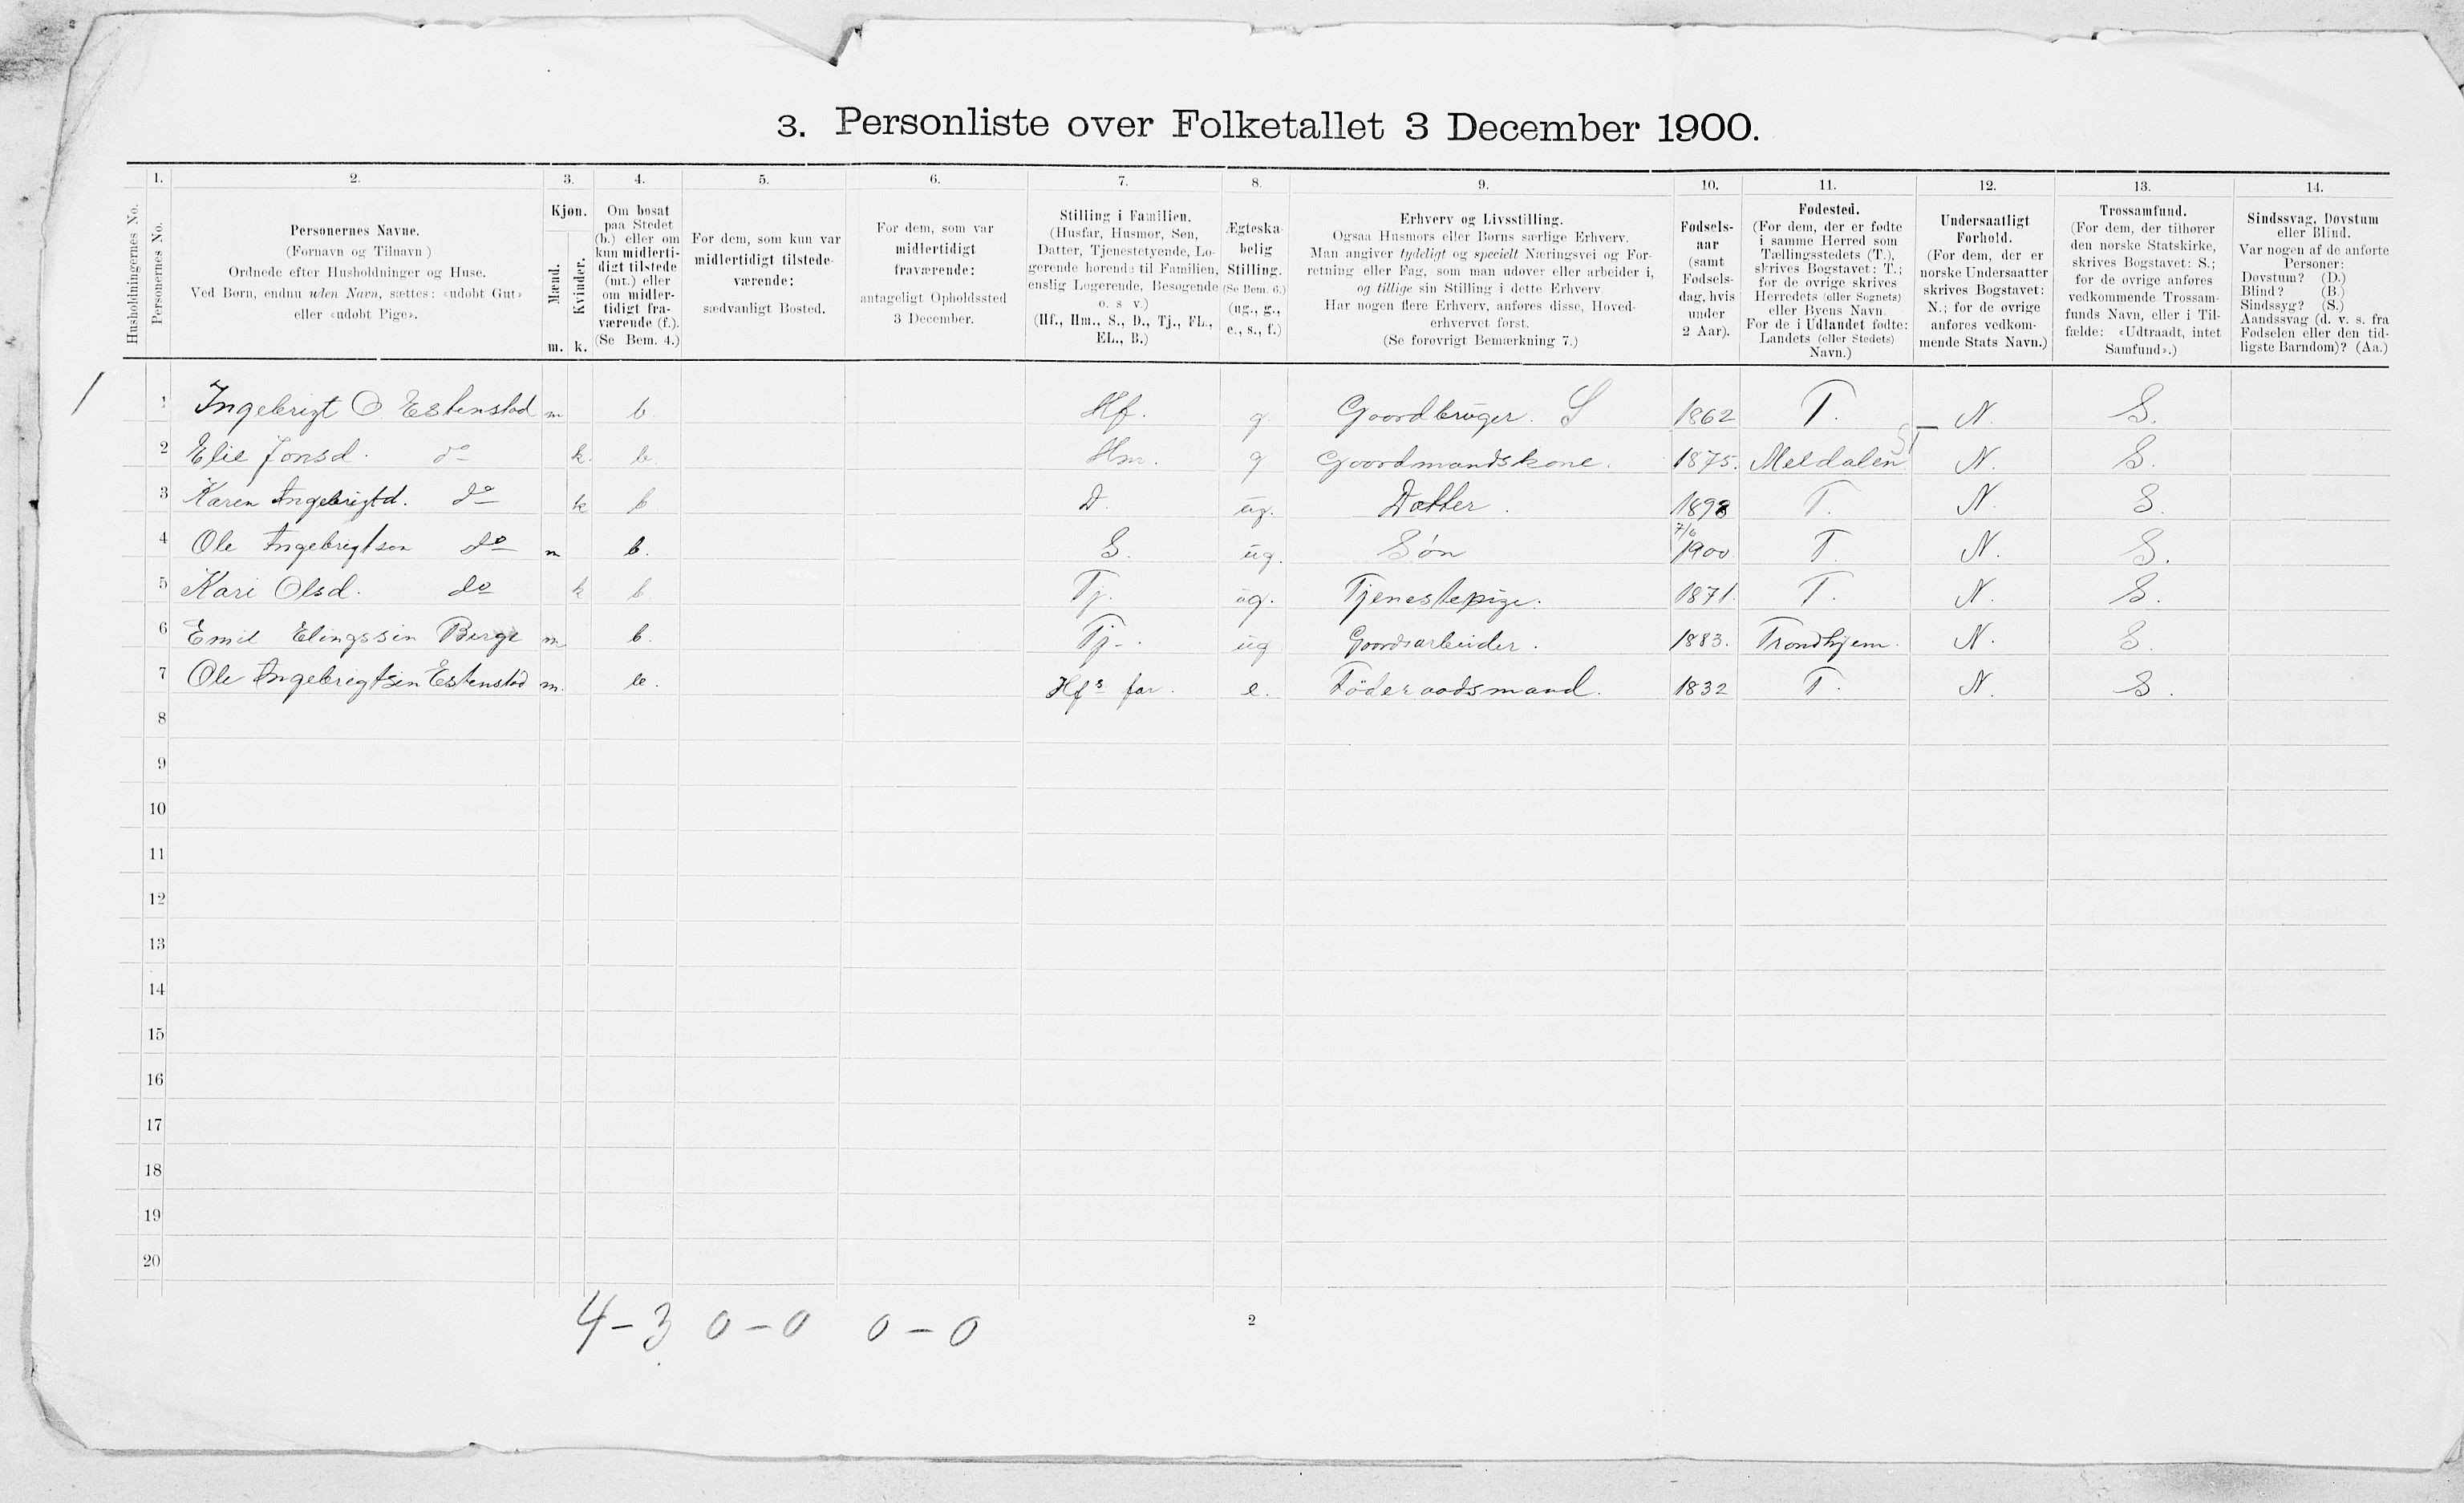 3. Personliste over Folketallet 3 December 1900.
1. 2. 3. 4. 5. 6. 7. 8. 9. 10. 11. 12. 13. 14.
Husholdningernes No.
Personernes No.
Personernes Navne.
(Fornavn og Tilnavn)
Ordnede efter Husholdninger og Huse.
Ved Børn, endnu uden Navn, sættes: «udøbt Gut»
eller «udøbt Pige».
Kjøn.
Mænd.
Kvinder.
m. k.
Om bosat
paa Stedet
(b.) eller om
kun midlerti-
digt tilstede
(mt.) eller
om midler-
tidigt fra-
værende (f.).
(Se Bem. 4.)
For dem, som kun var
midlertidigt tilstede-
værende:
sædvanligt Bosted.
For dem, som var
midlertidigt
fraværende:
antageligt Opholdssted
3 December.
Stilling i Familien.
(Husfar, Husmor, Søn,
Datter, Tjenestetyende, Lo-
gerende hørende til Familien,
enslig Logerende, Besøgende
o. s. v.)
(Hf., Hm., S., D., Tj., FL.,
EL., B.)
Ægteska-
belig
Stilling.
(Se Bem. 6.)
(ug., g.,
e., s., f.)
Erhverv og Livsstilling.
Ogsaa Husmors eller Børns særlige Erhverv.
Man angiver tydeligt og specielt Næringsvei og For-
retning eller Fag, som man udøver eller arbeider i,
og tillige sin Stilling i dette Erhverv.
Har nogen flere Erhverv, anføres disse, Hoved-
erhvervet først.
(Se forøvrigt Bemærkning 7.)
Fødsels-
aar
(samt
Fødsels-
dag, hvis
under
2 Aar).
Fødested.
(For dem, der er fødte
i samme Herred som
Tællingsstedets (T.),
skrives Bogstavet: T.;
for de øvrige skrives
Herredets (eller Sognets)
eller Byens Navn.
For de i Udlandet fødte:
Landets (eller Stedets)
Navn.)
Undersaatligt
Forhold.
(For dem, der er
norske Undersaatter
skrives Bogstavet:
N.; for de øvrige
anføres vedkom-
mende Stats Navn.)
Trossamfund.
(For dem, der tilhører
den norske Statskirke,
skrives Bogstavet: S.;
for de øvrige anføres
vedkommende Trossam-
funds Navn, eller i Til-
fælde: «Udtraadt, intet
Samfund».)
Sindssvag, Døvstum
eller Blind.
Var nogen af de anførte
Personer:
Døvstum? (D.)
Blind? (B.)
Sindssyg? (S.)
Aandssvag (d. v. s. fra
Fødselen eller den tid-
ligste Barndom)? (Aa.)
1 Ingebrigt O. Estenstad m b. Hf. g. Gaardbruger. S 1862 T. N. S.
2 Elie Jonsd. do k. b. Hm. g Gaardmandskone. 1875. Meldalen ST N. S.
3 Karen Ingebrigtd. do k b D. ug. Datter. 1898 T. N. S.
4 Ole Ingebrigtsen do m b. S. ug. Søn 7/6 1900 T. N. S.
5 Kari Olsd. do k b Tj. ug. Tjenestepige. 1871. T. N. S.
6 Emil Elingssen Berge m b. Tj. ug Gaardsarbeider. 1883. Trondhjem. N. S.
7 Ole Ingebrigtsen Estenstad m. b. Hfs far. e. Föderaadsmand. 1832 T. N. S.
8
9
10
11
12
13
14
15
16
17
18
19
20
4-3 0-0 0-0
2